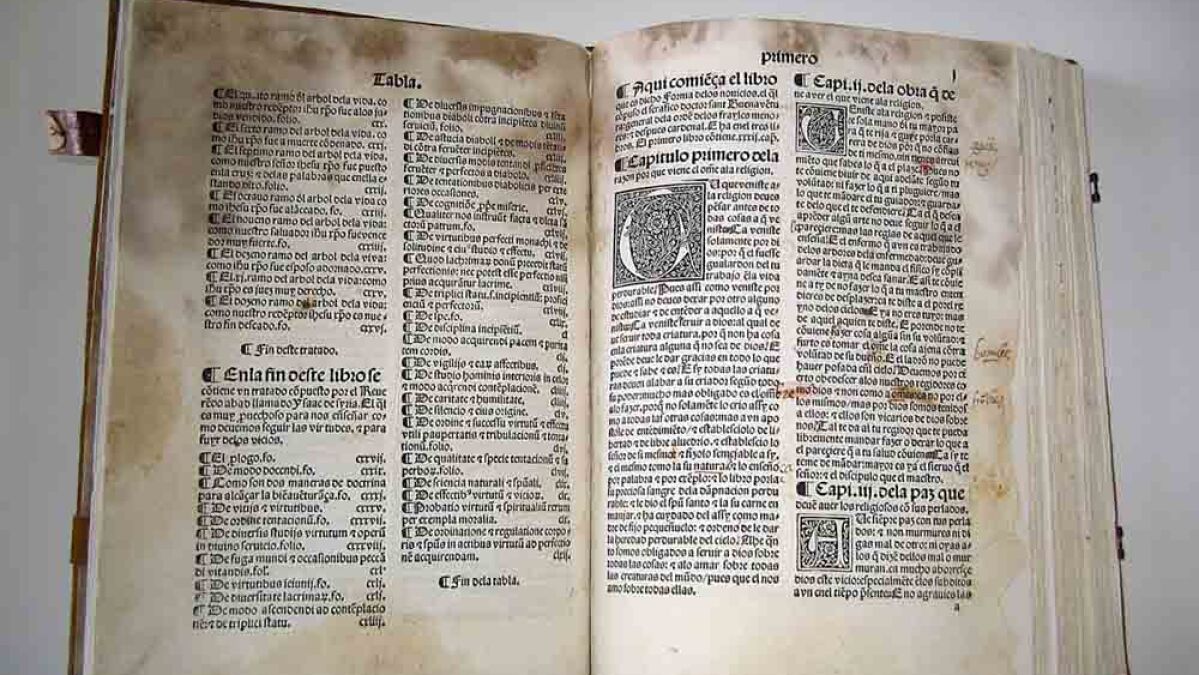 Tabla.
¶ El quīto ramo đl arbol dela vida. co
mo nuestro redēptor ihu xp̄o fue alos ju
dios vendido. folio. cxx.
¶ El sexto ramo del arbol dela vida. co
mo ihu xp̄o fue a muerte cōdenado. cxxj.
¶ El septimo ramo del arbol dela vida:
como nuestro señor ihesu xp̄o fue puesto
enla cruz: ⁊ delas palabras que enella e
stando dixo. folio. cxxij.
¶ El octauo ramo đl arbol dela vida co
mo ihu xp̄o fue alāceado. fo. cxxij.
¶ El noueno ramo del arbol dela vida:
como nuestro saluador ihu xp̄o fue vence
dor muy fuerte. fo. cxxiij.
¶ El dezeno ramo del arbol dela vida:
como ihu xp̄o fue esposo adornado. cxxv.
¶ El .xj. ramo del arbol dela vida: como
ihu xp̄o es juez muy derecho. cxv.
¶ El dozeno ramo del arbol dela vida:
como nuestro redēptor ihesu xp̄o es nue
stro fin deseado. fo. cxxvj.
¶ Fin deste tratado.
¶ Enla fin deste libro se
cōtiene vn tratado cōpuesto por el Reue
rēdo abad llamado ysaac de syria. El q̄l
es muy puechoso para nos enseñar co
mo deuemos seguir las virtudes, ⁊ para
fuyr delos vicios.
¶ El plogo. fo. cxxvij.
¶ De modo docendi. fo. cxxix.
¶ Como son dos maneras de doctrina
para alcāçar la biēauēturāça. fo. cxxxj.
¶ De vicijs ⁊ virtutibus. cxxxv.
¶ De ordine tentacionū. fo. cxxxvij.
¶ De diuersis studijs virtutum ⁊ operū
in diuino seruicio. folio. cxxxviij.
¶ De fuga mundi ⁊ occasionibus pecca
di vitandis. fol.
¶ De virtutibus sciunij. fo. cxlj.
¶ De diuersitate lacrimaꝝ. fo. cxlj.
¶ De modo ascendendi ad contēplacio
nē: ⁊ de triplici statu. cxliij.
¶ De diuersis impugnacionibus ⁊
diaboli cotra incipiētes diuinū
seruiciū. folio.
¶ De astucia diaboli ⁊ de modo tentan
di cōtra feruēter incipiētes. cxliij.
¶ De diuersis modis tentandi
feruēter ⁊ perfectos a diabolo.
¶ De tentationibus diabolicis per exte
riores occasiones. cxlv.
¶ De cognitiōe, pp̄e miserie. cxlvj.
¶ Qualiter nos instruūt facta ⁊ dicta sā
ctorū patrum. fo. cxlvj.
¶ De virtutibus perfecti monachi ⁊ de
solitudine ⁊ eiu ⁊ effectu. cxlvij.
¶ Quod lachrimaꝝ donū precedit statū
perfectionis: nec potest esse perfectio nisi
prius acquirātur lacrime. cxlvij.
¶ De triplici statu. s. incipientiū: profici
entiū ⁊ perfectorū. cxlviij.
¶ De spe. fo. cxlix.
¶ De disciplina incipiētiū. cl.
¶ De modo acquirendi pacem ⁊ purita
tem cordis. clj.
¶ De vigilijs ⁊ eaꝝ affectibus. clj.
¶ De studio hominis interioris in celis
⁊ modo acq̄rendi contēplacionē. clij.
¶ De caritate ⁊ humilitate. cliij.
¶ De silencio ⁊ eius origine. cliij.
¶ De ordine ⁊ successu virtutū ⁊ effectu
vtili paupertatis ⁊ tribulacionū ⁊ tenta
tionū. folio. clv.
¶ De qualitate ⁊ specie tentacionū ⁊ su
perboꝝ. folio. clvj.
¶ De sciencia naturali ⁊ spūali. clvij.
¶ De effectibꝰ virtutū ⁊ vicioꝝ. clx.
¶ Probatio virtutū ⁊ spiritualiū rerum
per exempla moralia. clx.
¶ De ordinatione ⁊ regulatione corpo
ris ⁊ spūs in actibus virtutū ad perfectio
nē acquirendam. clxij.
¶ Fin dela tabla.
primero j
¶ Aqui comiēça el libro
que es dicho Forma delos nouicios. el q̄l
cōpuso el serafico doctor sant Buenauētu
ra: general dela ordē delos frayles meno
res: ⁊ despues cardenal. E ha enel tres li
bros. El primero libro cōtiene. xxxij. cap̄.
¶ Capitulo primero dela
razon por que viene el ome ala religion.
El que veniste a
la religion deues
pēsar antes de to
das cosas a q̄ ve
niste. Ca veniste
solamente por di
os: por q̄ el fuesse
gualardon del tu
trabajo ēla vida
perdurable. Pues assi como veniste por
dios: assi no deues dexar por otro alguno
de estudiar ⁊ de entēder a aquello a q̄ ve
niste. Ca veniste seruir a dios: al qual de
ue seruir toda criatura, por q̄ non ha en
ella criatura alguna q̄ no sea de dios. E
porēde deue le dar gracias en todo lo que
puede ⁊ sabe ⁊ ea. E sy todas las criatu
ras deuen alabar a su criador segūd todo
su poder: mucho mas obligado es el ome
alo fazer, porq̄ no solamēte lo crio assy co
mo a todas las otras cosas: mas a vn apo
stole de entēdimiēto: ⁊ establesciolo de li
bertad ⁊ de libre aluedrio. ⁊ establescio lo
señor de si mesmo: ⁊ fizolo semejable a sy:
⁊ el mesmo tomo la su natura: ⁊ lo enseño
por palabra ⁊ por exēplo: ⁊ lo libro por la
su preciosa sangre dela dāpnacion perdu
rable: ⁊ le dio el spū santo ⁊ la su carne en
manjar. ⁊ ha cuydado del assy como ma
dre de fijo pequeñuelo: ⁊ ordeno de le dar
la heredad perdurable del cielo. Alhe q̄n
to somos obligados a seruir a dios sobre
todas las cosas: ⁊ alo amar sobre todas
las criaturas del mūdo / pues que el nos
amo sobre todas ellas.
¶ Capi. ij. dela obra q̄ de
ue a ver el que viene ala religion.
Eniste ala religion ⁊ posiste
te sola mano đl tu mayor pa
ra q̄ te rija ⁊ guie por la car
rera de dios por q̄ no confias
de ti mesmo, nin tienes atreui
miēto que sabes lo q̄ a el plaze. Pues no
te cōuiene biuir de aqui adelāte segūn tu
volūtad: ni fazer lo q̄ a ti pluguiere / mas
lo que te mādare el tu guiador: ⁊ guardar
te delo que te defendiere. Ca el q̄ dessea
apēder algū arte no deue seguir lo que a el
paresciere mas las reglas de aquel que le
enseña. E el enfermo q̄ avn es trabajado
delos ardores dela enfermedad: deue gu
ardar la dieta q̄ le manda el fisico sy cōpli
damēte ⁊ ayna dessea sanar. E assi te cōuie
ne a ti fazer lo q̄ a tu maestro / en otra ma
niera le desplazera: ca te diste a el por el re
yno delos cielos. E ya no eres tuyo: mas
de aquel aquien te diste. E porende no te
cōuiene fazer cosa alguna sin su saber. Ca
furto es tomar el ome la cosa ajena cōtra
volūtad de su dueño. E el ladrō no puede
hauer posada enl cielo. Deuemos por ci
erto obedescer alos nuestros regidores co
mo a dios ⁊ non como a omes: ca no por e
llos mismos / mas por dios somos tenidos
a ellos: ⁊ ellos son vicarios de dios sobre
nos. Tal te da al tu regidor: que te pueda
libremente mandar fazer o dexar lo que a
el paregiere q̄ a tu salud cōuiene. Ca sy te
teme de mādar: mayor es ya el sieruo q̄ el
señor, ⁊ el discipulo que el maestro.
¶ Capi. iij. dela paz que
deuē auer los religiosos cō sus perlados.
Ue siēpre paz con tus perla
dos. ⁊ non murmures ni di
gas mal de otro: ni oyas a
los q̄ dizē dellos mal o mur
muran. ca mucho aborresçe
dios este vicio: especialmēte elos subditos
avn enel tiēpo pſente. E no agrauies las
a